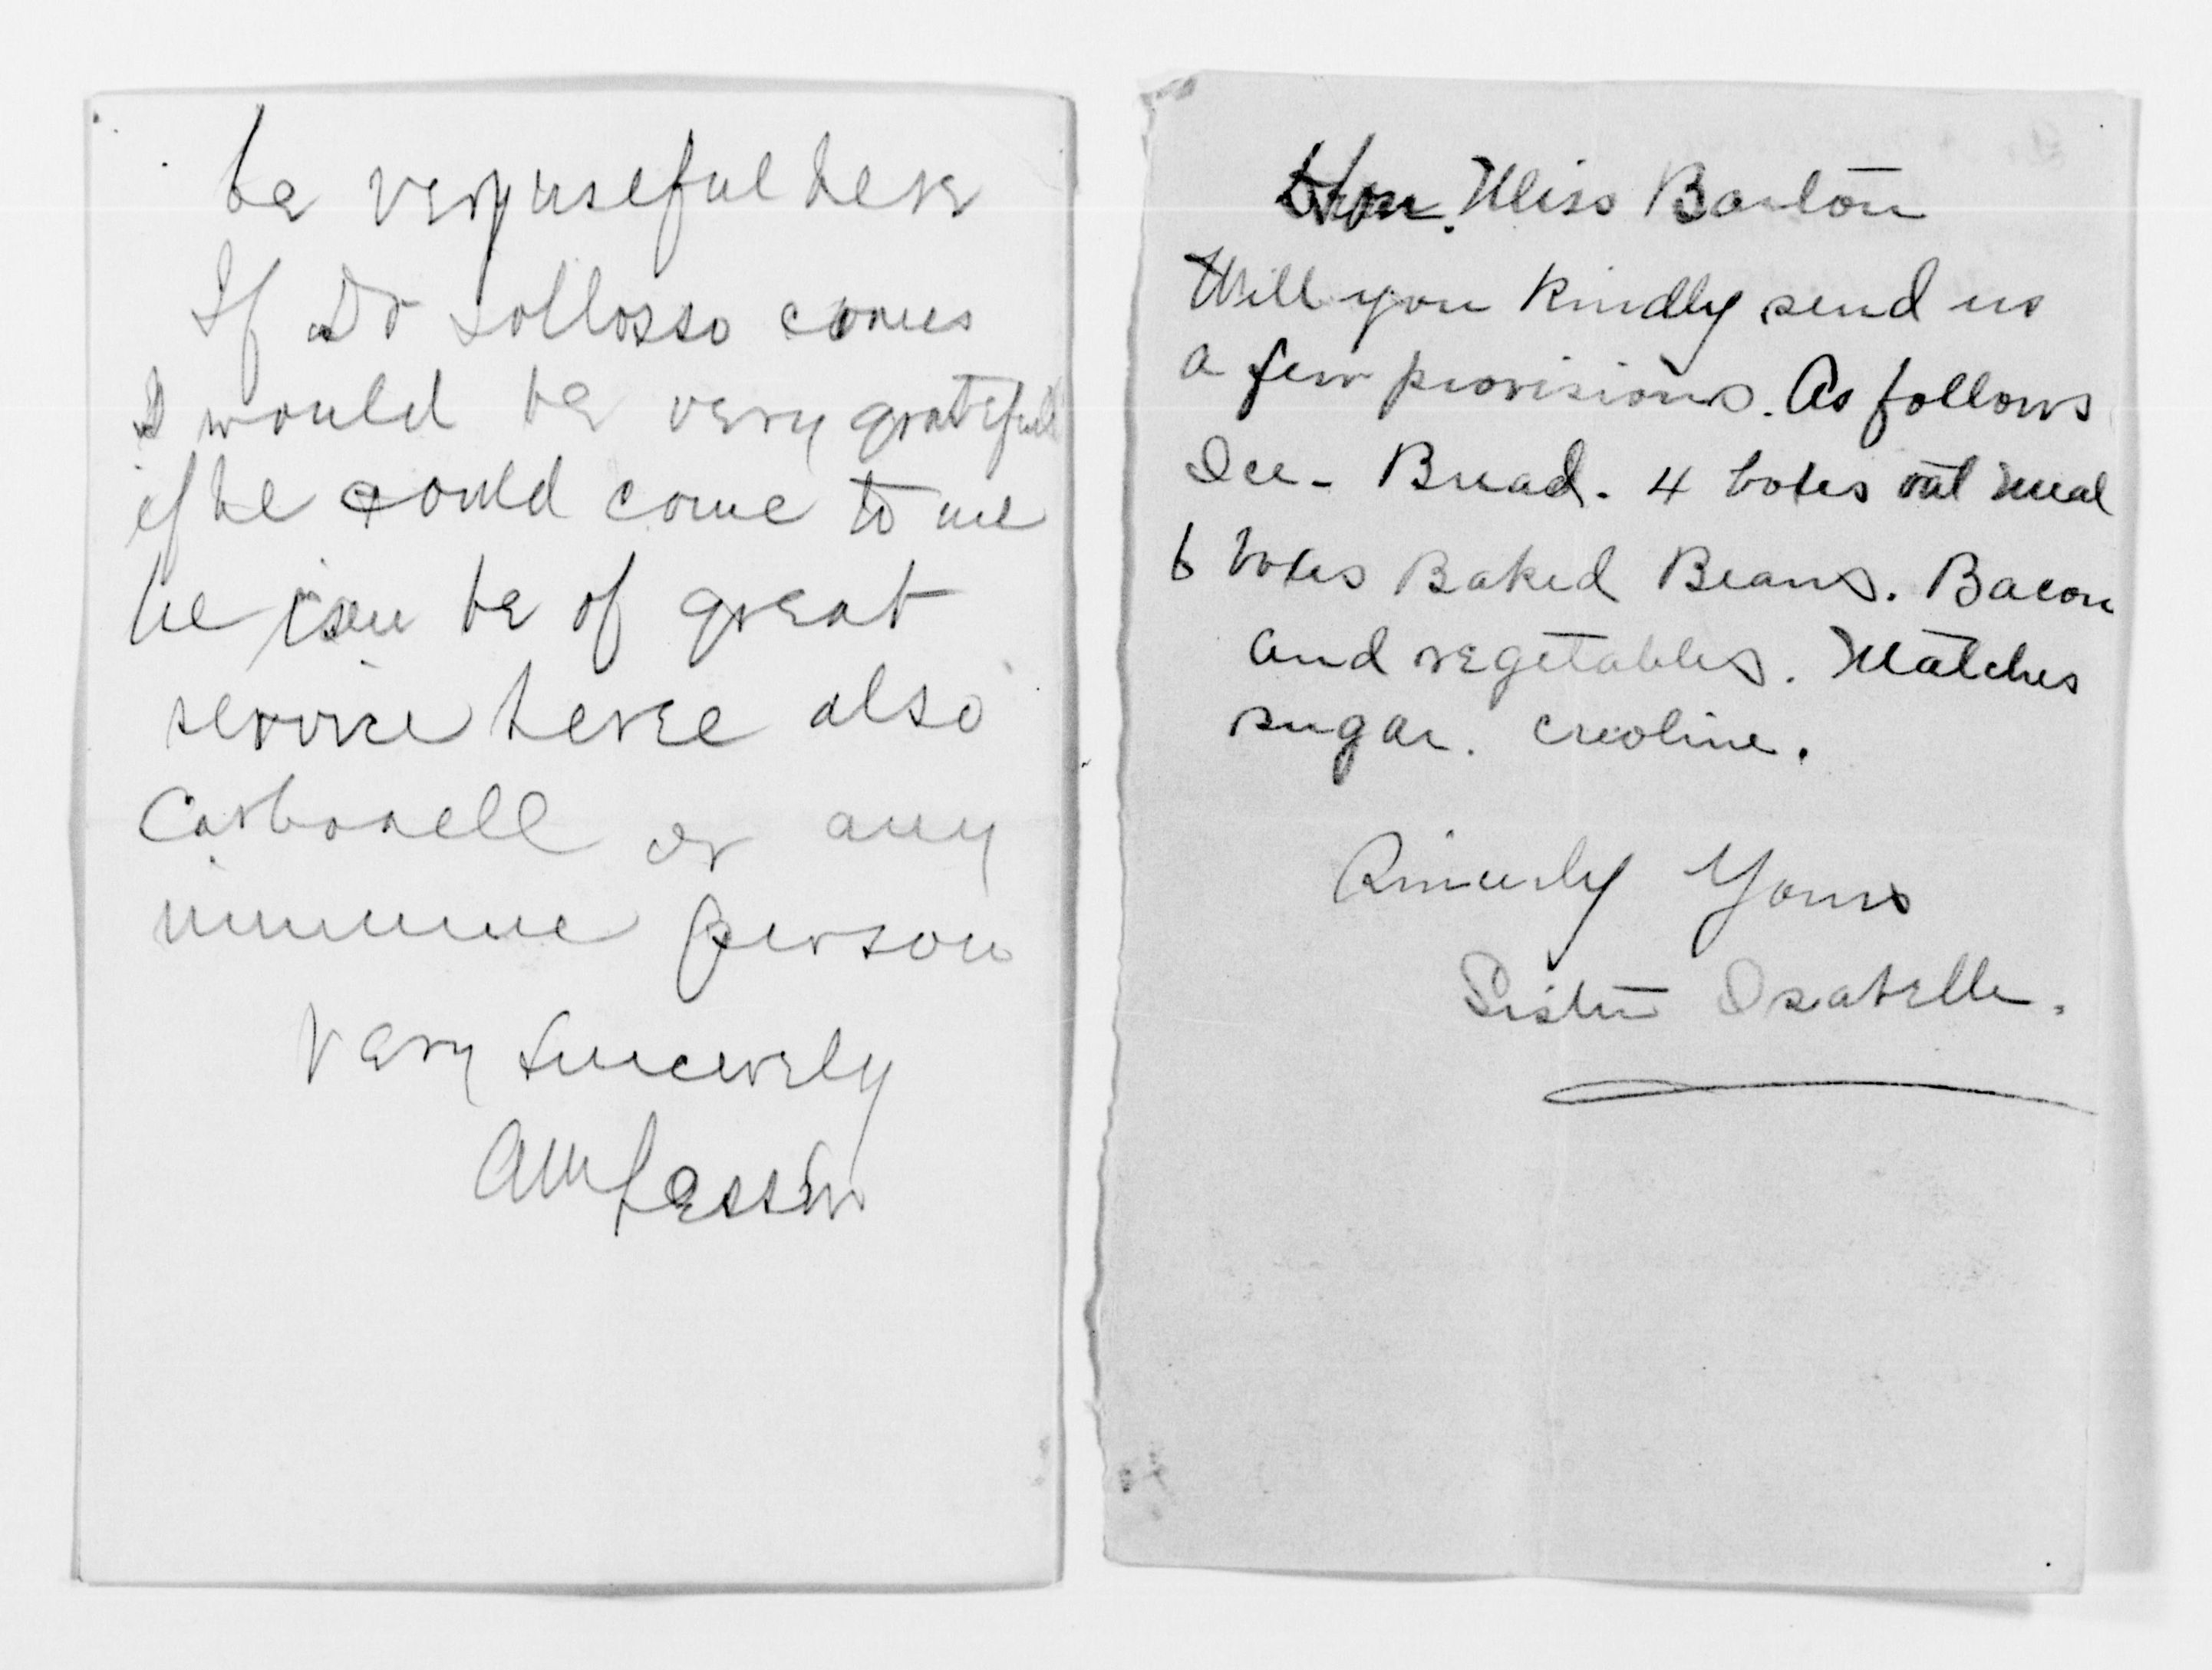 be very useful here
If Dr Sollosso comes
I would be very grateful
if he could come to me
he can be of great
service here also
Carbonell or any
immune person
Very Sincerely
AM Lesser
Hon. Miss Barton
Will you kindly send us
a few provisions. As follows
Ice - Bread. 4 boxes oat meal
6 boxes Baked Beans. Bacon
and vegetables. Matches
sugar. creoline.
Sincerely Yours
Sister Isabelle.